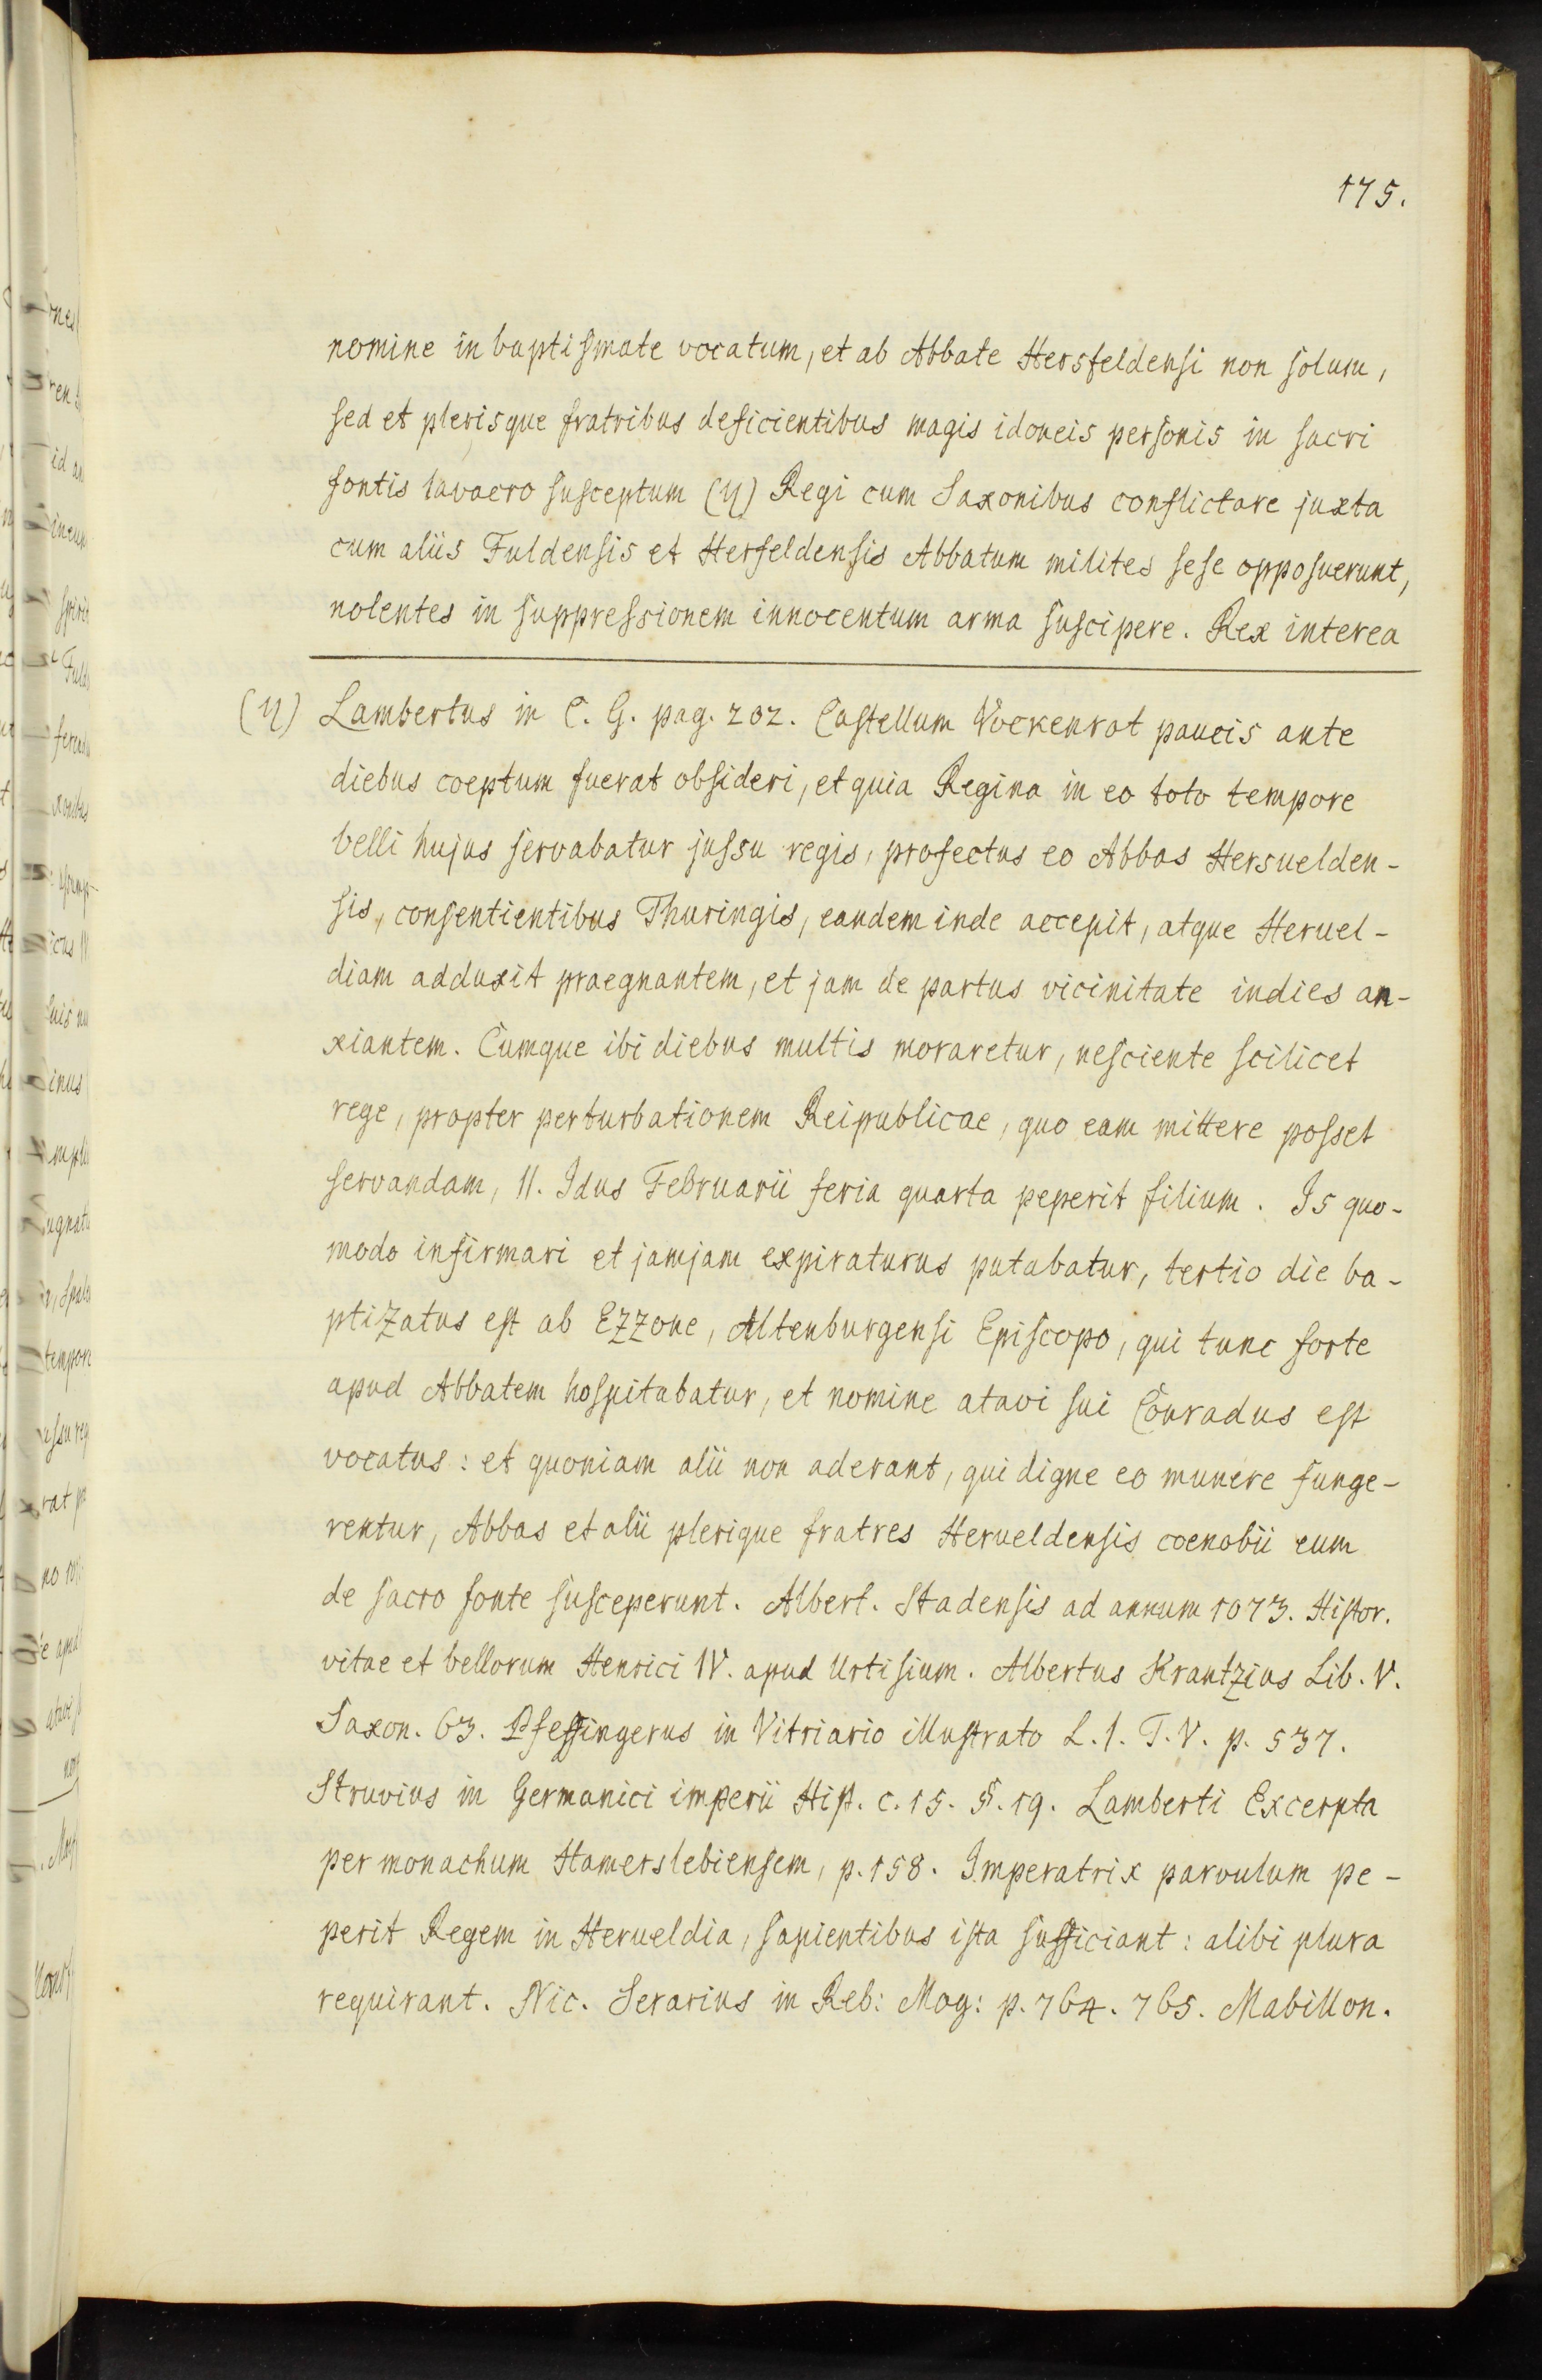 175.
nomine in baptismate vocatum, et ab Abbate Hersfeldensi non solum,
sed et plerisque fratribus deficientibus magis idoneis personis in sacri
fontis lavacro susceptum (η) Regi cum Saxonibus conflictare juxta
cum aliis Fuldensis et Herfeldensis Abbatum milites sese opposuerunt,
nolentes in suppressionem innocentum arma suscipere. Rex interea
(η) Lambertus in C. G. pag. 202. Castellum Vockenrot paucis ante
diebus coeptum fuerat obsideri, et quia Regina in eo toto tempore
belli hujus servabatur jussu regis, profectus eo Abbas Hersuelden-
sis, consentientibus Thuringis, eandem inde accepit, atque Heruel-
diam adduxit praegnantem, et jam de partus vicinitate indies an-
xiantem. Cumque ibi diebus multis moraretur, nesciente scilicet
rege, propter perturbationem Reipublicae, quo eam mittere posset
servandam, II. Idus Februarii feria quarta peperit filium. Is quo-
modo infirmari et jamjam expiraturus putabatur, tertio die ba-
ptizatus est ab Ezzone, Altenburgensi Episcopo, qui tunc forte
apud Abbatem hospitabatur, et nomine atavi sui Conradus est
vocatus: et quoniam alii non aderant, qui digne eo munere funge-
rentur, Abbas et alii plerique fratres Herueldensis coenobii eum
de sacro fonte susceperunt. Albert. Stadensis ad annum 1073. Histor.
vitae et bellorum Henrici IV. apud Urtisium. Albertus Krantzius Lib. V.
Saxon. 63. Pfeffingerus in Vitriario illustrato L. I. T. V. p. 537.
Struvius in Germanici imperii Hist. c. 15. §. 19. Lamberti Excerpta
per monachum Hamerslebiensem, p. 158. Imperatrix parvulum pe-
perit Regem in Herueldia, sapientibus ista sufficiant: alibi plura
requirant. Nic. Serarius in Reb: Mog: p. 764. 765. Mabillon.